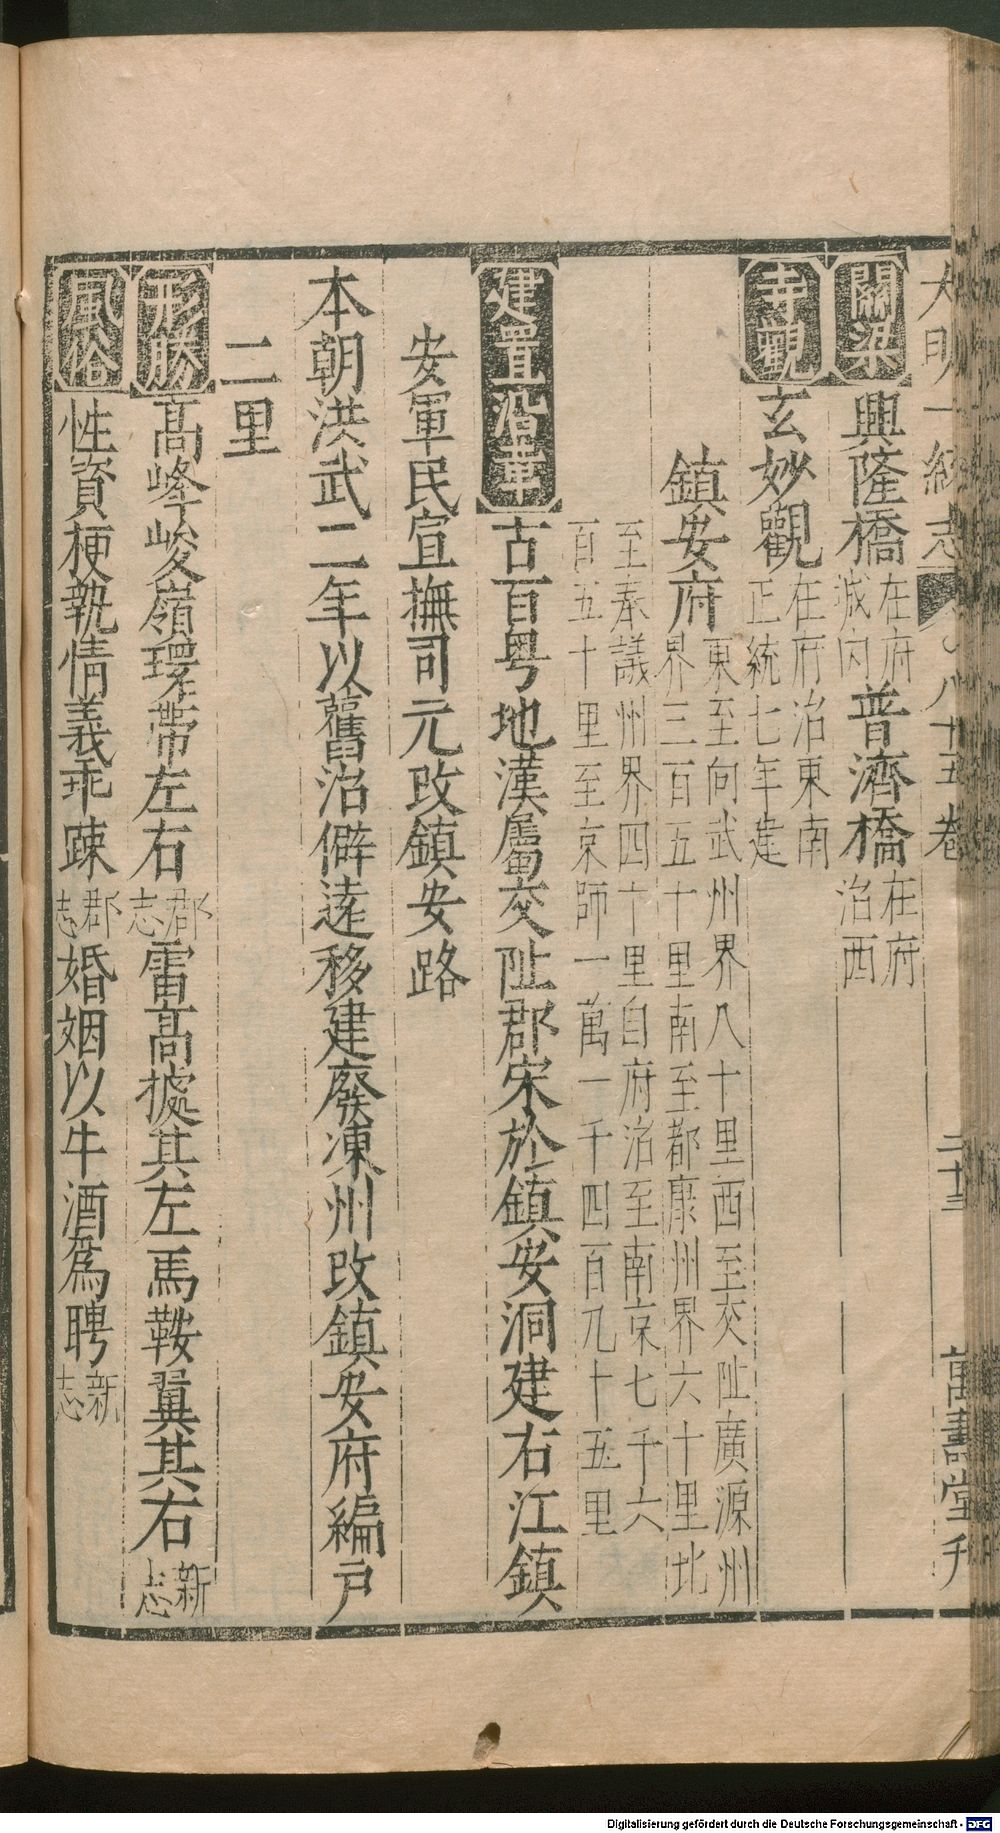 大明一統志 八十五卷 二十三 萬壽堂刊
關梁 興隆橋 在府城內 普濟橋 在府治西
寺觀 玄妙觀 在府治東南正統七年建
鎮安府 東至向武州界八十里西至交阯廣源州界三百五十里南至都康州界六十里北
至奉議州界四十里自府治至南京七千六百五十里至京師一萬一千四百九十五里
建置沿革 古百粤地漢屬交阯郡宋於鎮安洞建右江鎮
安軍民宣撫司元改鎮安路
本朝洪武二年以舊治僻遠移建廢凍州改鎮安府編戶
二里
形勝 高峰峻嶺環帶左右 郡志 雷高據其左馬鞍翼其右 新志
風俗 性資梗執情義乖疎 郡志 婚姻以牛酒爲聘 新志
Digitalisierung gefördert durch die Deutsche Forschungsgemeinschaft - DFG